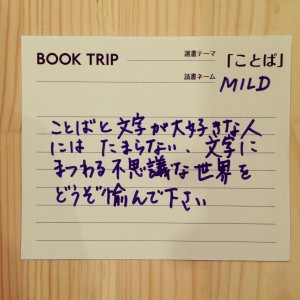 BOOK TRIP
選書テーマ 「ことば」
読書ネーム MILD
ことばと文字が大好きな人
には たまらない、文字に
まつわる不思議な世界を
どうぞ愉んで下さい